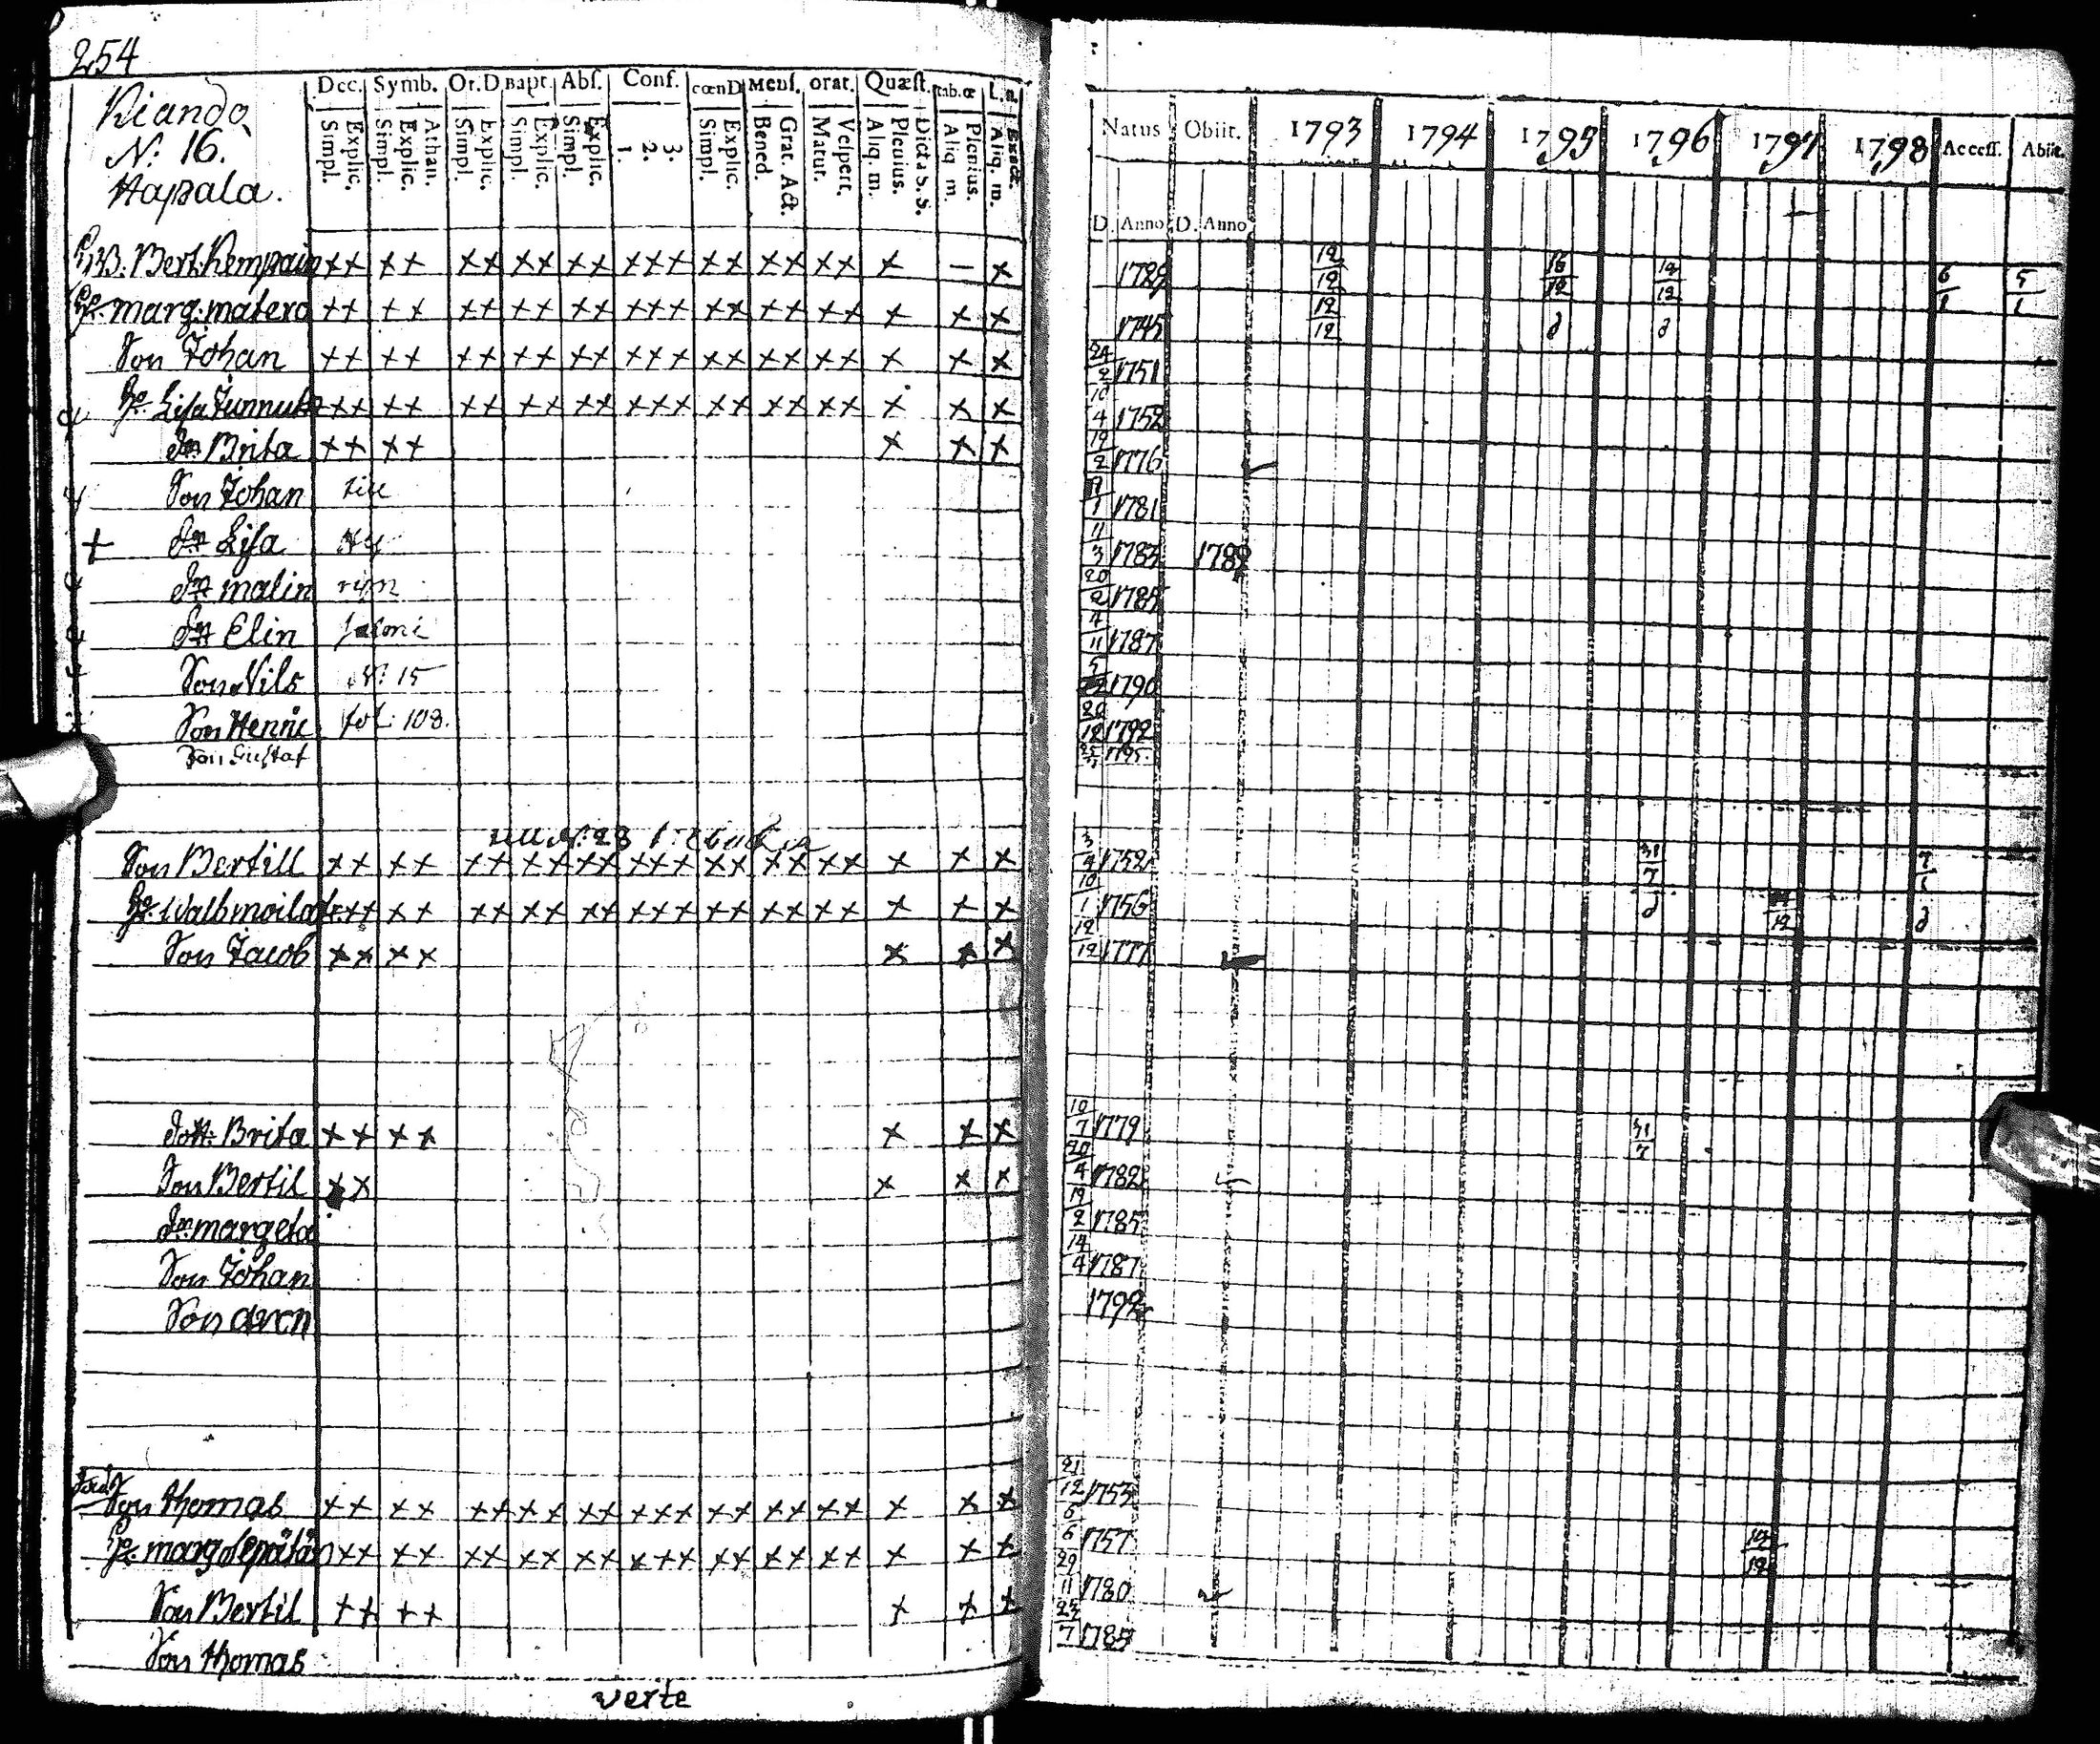 254
Dec. Symb. Or. D Bapt. Abs. Conf. cœnD Mens. orat. Quæst. tab.œ L.n.
Simpl. Explic. Simpl. Explic. Athan. Simpl. Explic. Simpl. Explic. Simpl. Explic. 1. 2. 3. Simpl. Explic. Bened. Grat. Act. Matut. Vespert. Aliq. m. Plenius. Dicta S. S. Aliq m. Plenius. Aliq. m. Exact.
Kiando
N: 16.
Hapsala.
Natus Obiit. 1793 1794 1795 1796 1797 1798 Access. Abiit.
D. Anno D. Anno
Bert: Kempain ×× ×× ×× ×× ×× ××× ×× ×× ×× × – ×
12/12 16/12 12/12 6/1 5/1
H: marg: matero ×× ×× ×× ×× ×× ××× ×× ×× ×× × × × 1745 12/12 d d
Son Johan ×× ×× ×× ×× ×× ××× ×× ×× ×× × × × 24/2 1751
H: Lisa Tunnut ×× ×× ×× ×× ×× ××× ×× ×× ×× × × × 10/4 1752
Dr Brita ×× ×× × × × 19/2 1776
Son Johan till 9/1 1781
+ Dr Lisa Hy 11/3 1783 1789
Dr malin ryn 20/2 1785
Dr Elin 4/11 1787
Son Nils N: 15 5 1790
Son Henric fol: 108. 20/12 1792
Son Gustaf 1795.
N: 23
Son Bertill ×× ×× ×× ×× ×× ××× ×× ×× ×× × × × 3/4 1752 31/7 7/1
H: Walb moila ×× ×× ×× ×× ×× ××× ×× ×× ×× × × × 10/1 1756 d d
Son Jacob ×× ×× × × × 12/12 1777
Dott: Brita ×× ×× × × × 10/7 1779 31/7
Son Bertil ×× × × × 20/4 1782
Dr margeta 19/2 1785
Son Johan 14/4 1787
Son aron 1792
Son thomas ×× ×× ×× ×× ×× ××× ×× ×× ×× × × × 21/12 1753
H: marg Sepätän ×× ×× ×× ×× ×× ××× ×× ×× ×× × × × 6/6 1757
Son Bertil ×× ×× × × × 29/11 1780
Son thomas 25/7 1785
verte